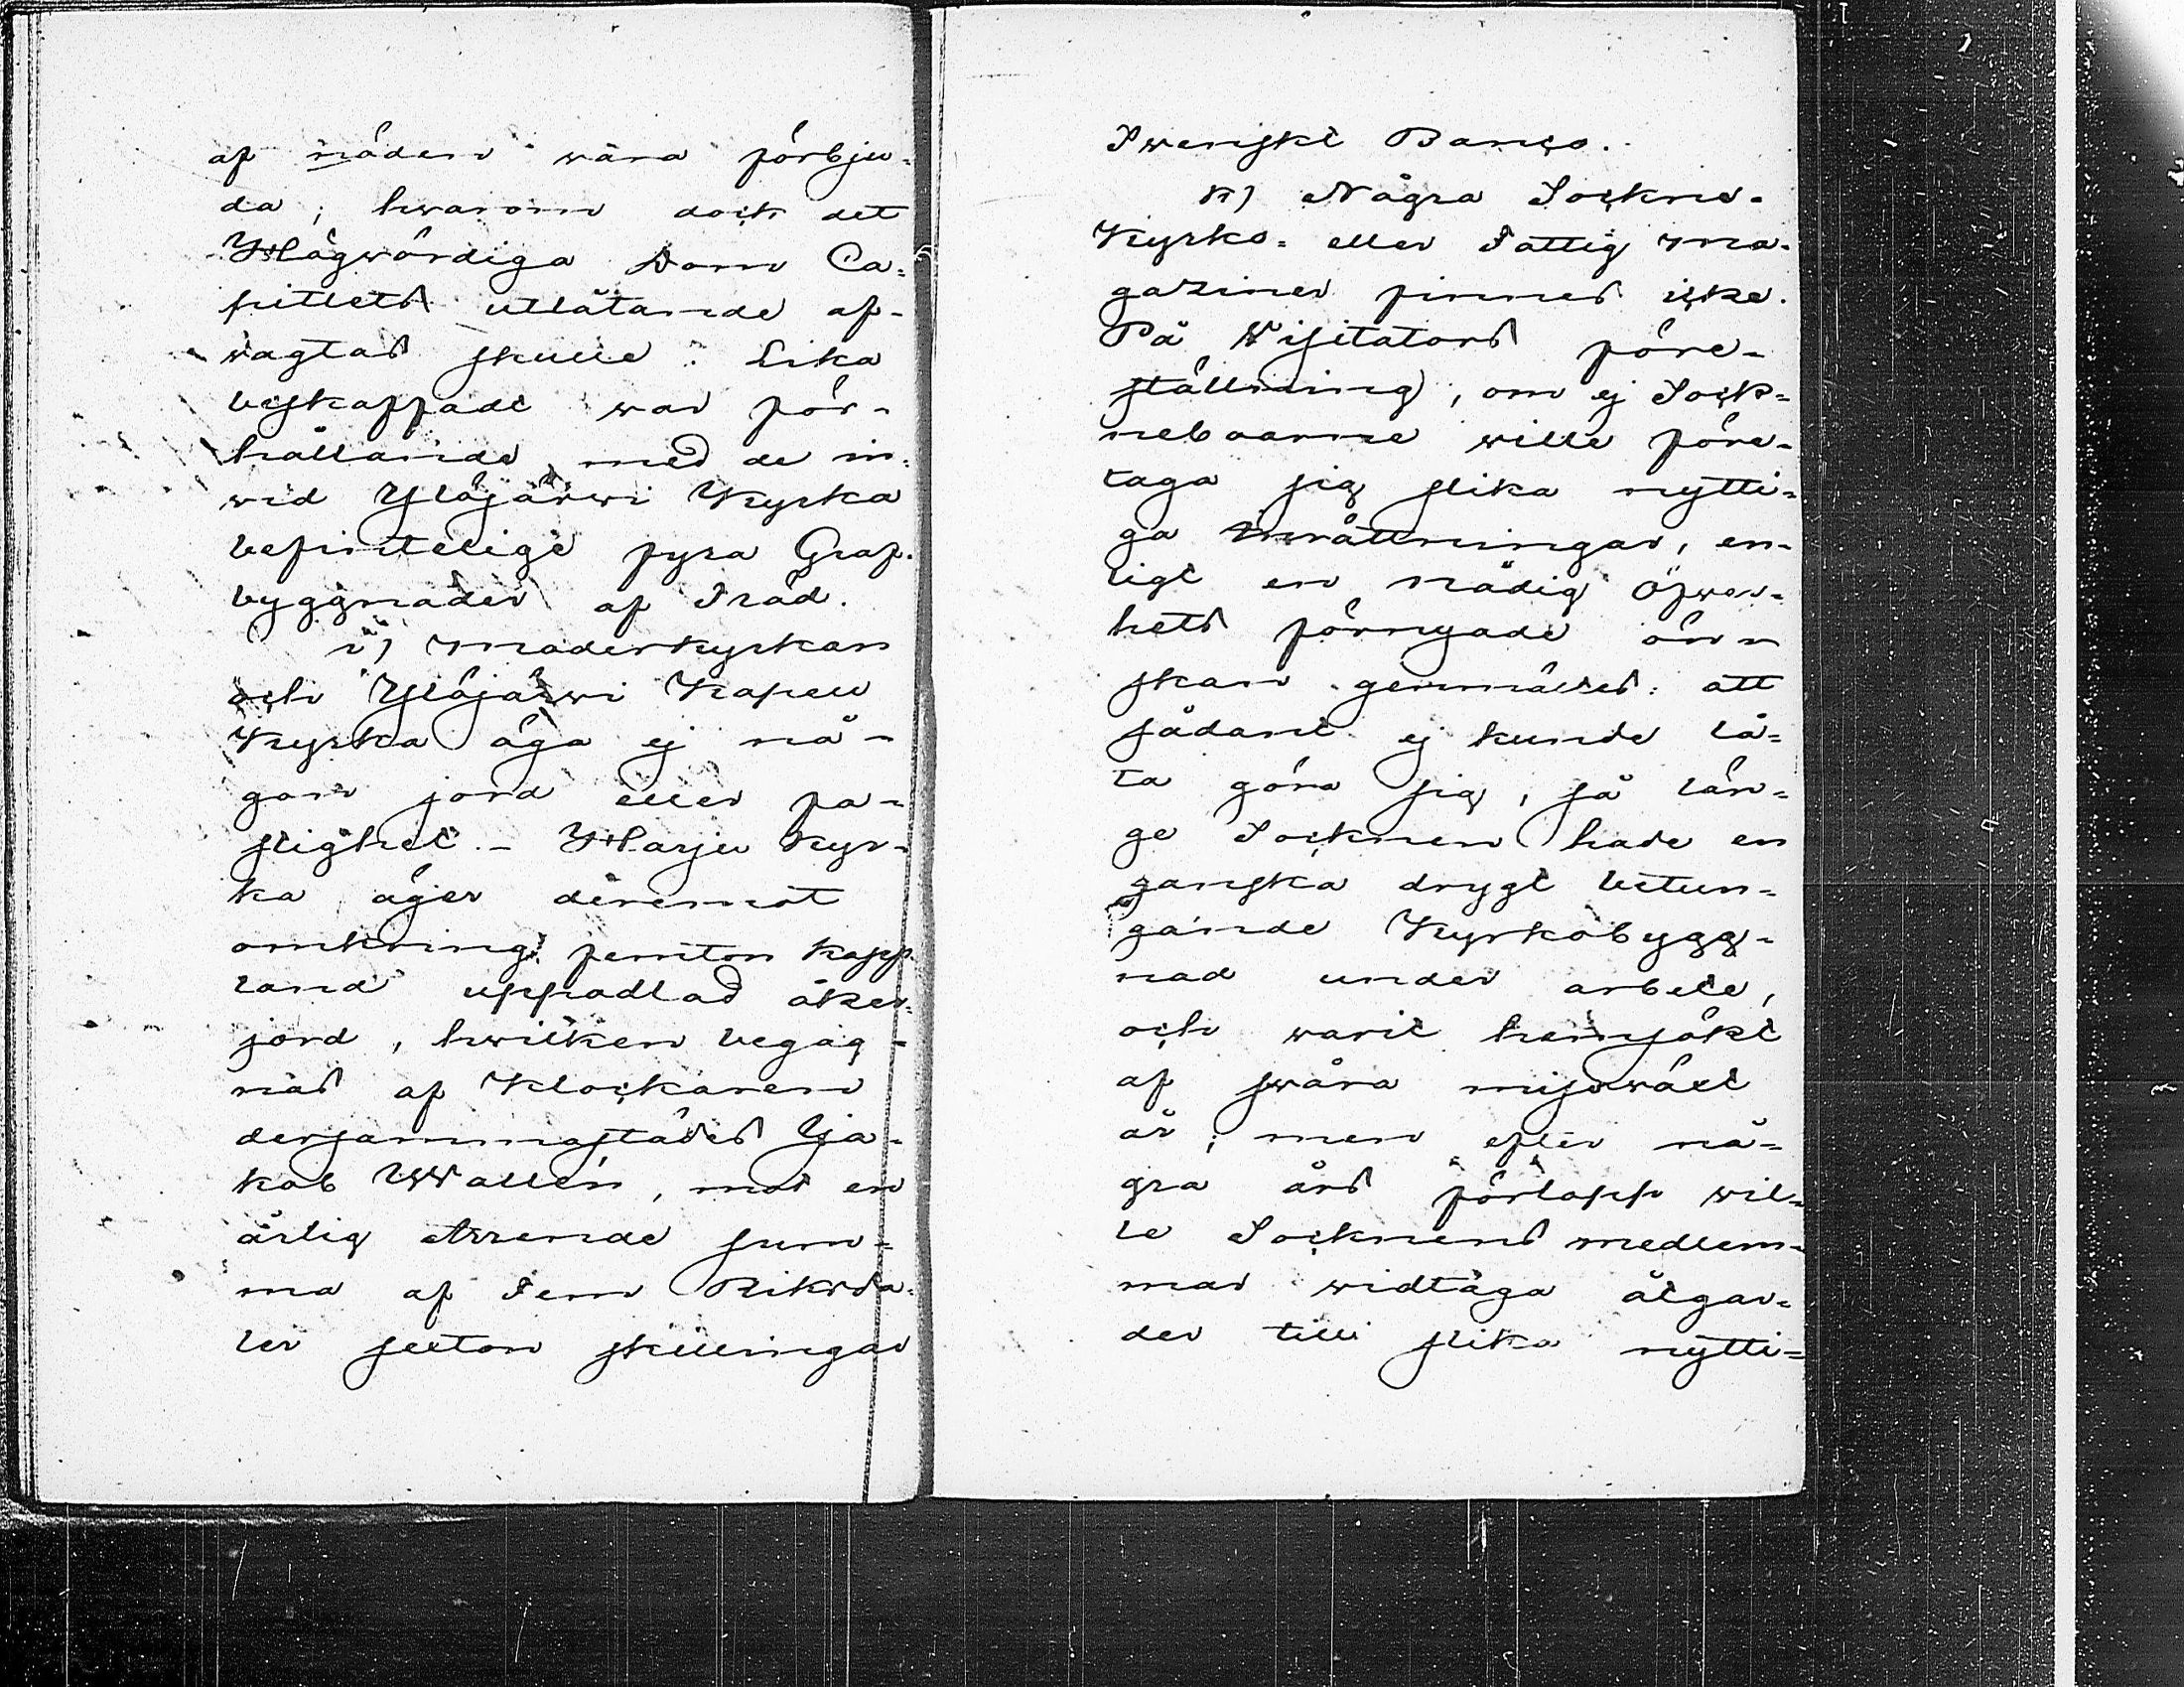 af nöden wara förbju-
da; hwarom dock det
Högwördiga Dom Ca-
pitlets utlåtande af-
wagtas skulle. Lika
beskaffadt war för-
hållande med de in-
wid Ylöjärwi Kyrka
befintelige fyra Graf-
byggnader af Träd.
i) Moderkyrkan
och Ylöjärwi Kapell
Kyrka äga ej nå-
gon jord eller fa-
stighet. - Harju Kyr-
ka äger deremot
omkring femton kapp-
land uppodlad åker-
jord, hwilken begag-
nas af Klockaren
dersammastädes Ja-
kob Wallén, mot en
årlig Arrende sum-
ma af Fem Riksda-
ler sexton skillingar
Swenskt Banco.
k) Några Sockne-
Kyrko- eller Fattig Ma-
gaziner finnes icke.
På Visitators före-
ställning, om ej Sock-
neboarne wille före-
taga sig slika nytti-
ga inrättningar, en-
ligt en Nådig Öfwer-
hets förnyade öns-
kan genmältes: att
sådant ej kunde lå-
ta göra sig, så län-
ge Socknen hade en
ganska drygt betun-
gande Kyrkobygg-
nad under arbete,
och warit hemsökt
af swåra missväxt
år; men efter nå-
gra års förlopp wil-
le Socknens medlem-
mar widtaga åtgär-
der till slika nytti-